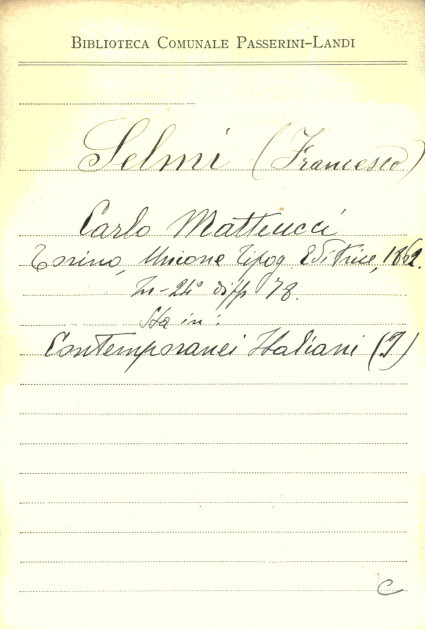 BIBLIOTECA COMUNALE PASSERINI-LANDI
Selmi (Francesco)
Carlo Matteucci
Torino, Unione Tipog. Editrice, 1862.
In-24° di pp 78.
Sta in:
Contemporanei Italiani (I)
C